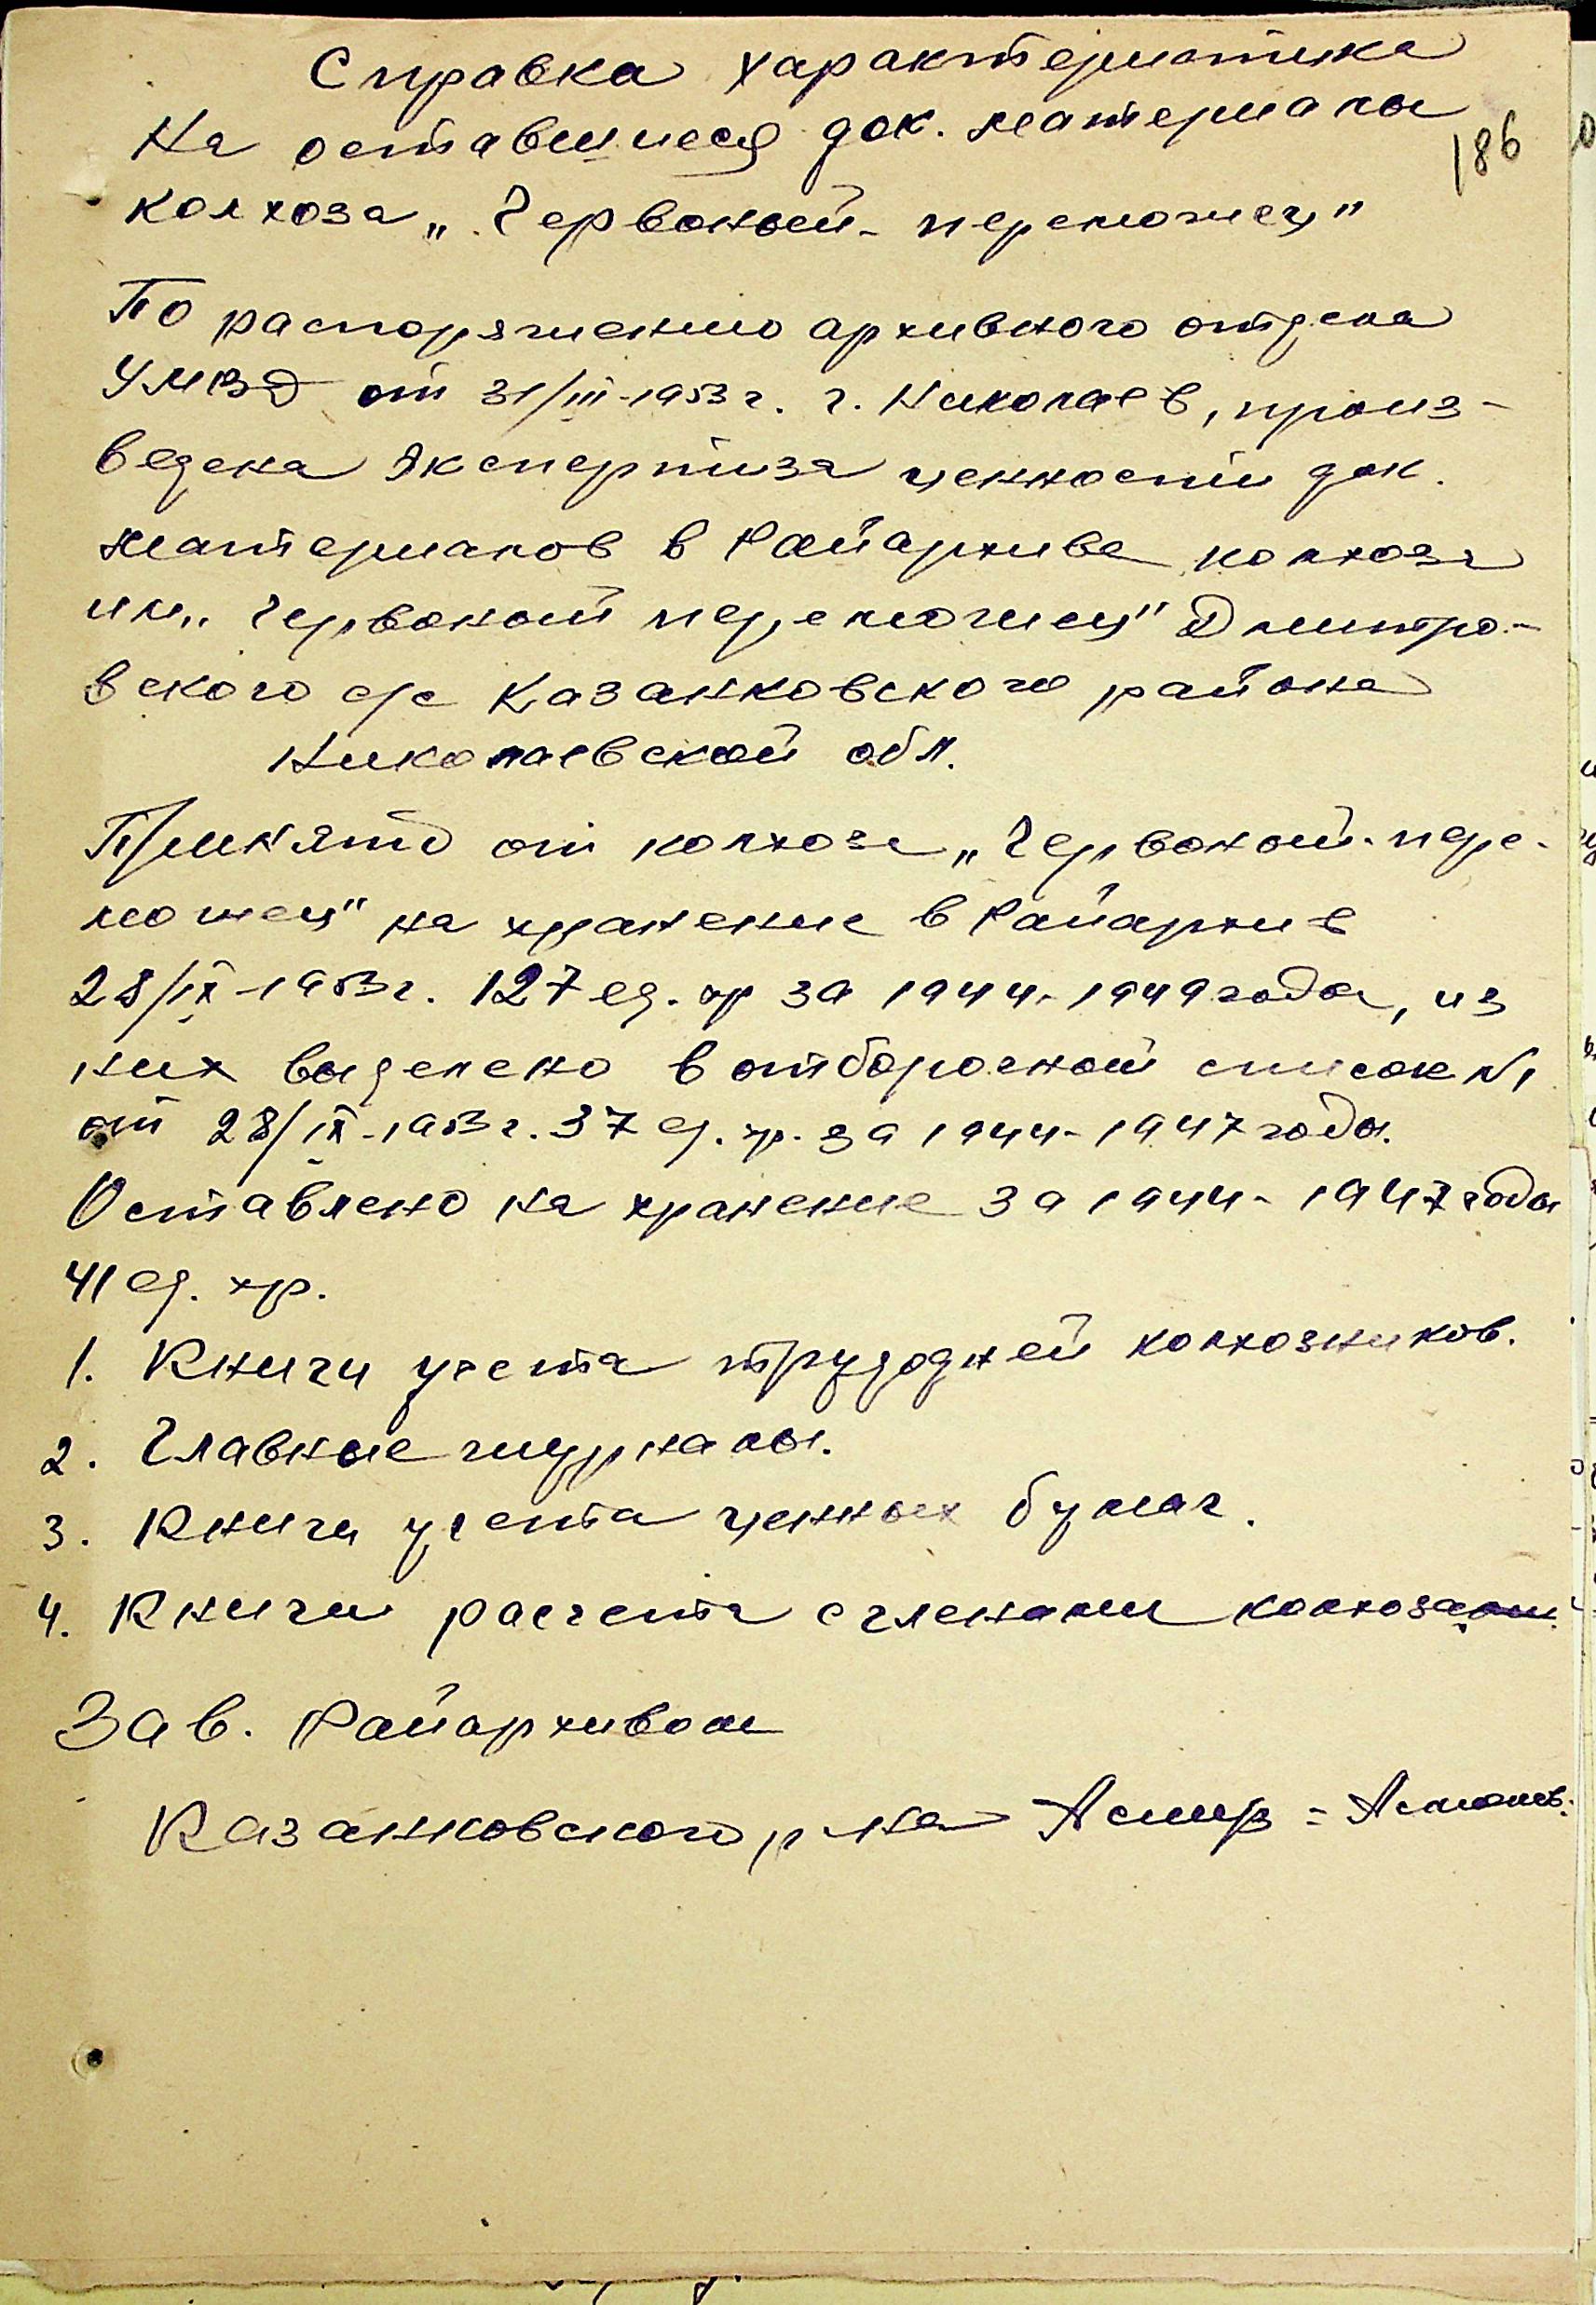 Справка характеристика
На оставшиеся док. материалы
186
колхоза „Червоный-переможец"
По распоряжению архивного отдела
УМВД от 31/III-1953 г. г. Николаев, произ-
ведена экспертиза ценности док.
материалов в Райархиве колхоза
им „Червоный переможец" Дмитро-
вского с/с Казанковского района
Николаевской обл.
Принято от колхоза „Червоный-пере-
можец" на хранение в Райархив
28/IX-1953 г. 127 ед. хр за 1944-1949 года, из
них выделено в отборочный список №1
от 28/IX-1953 г. 37 ед. хр. за 1944-1947 года.
Оставлено на хранение за 1944-1947 года
41 ед. хр.
1. Книги учета трудодней колхозников.
2. Главные журналы.
3. Книги учета ценных бумаг.
4. Книги расчета с членами колхоза.
Зав. Райархивом
Казанковского р-на